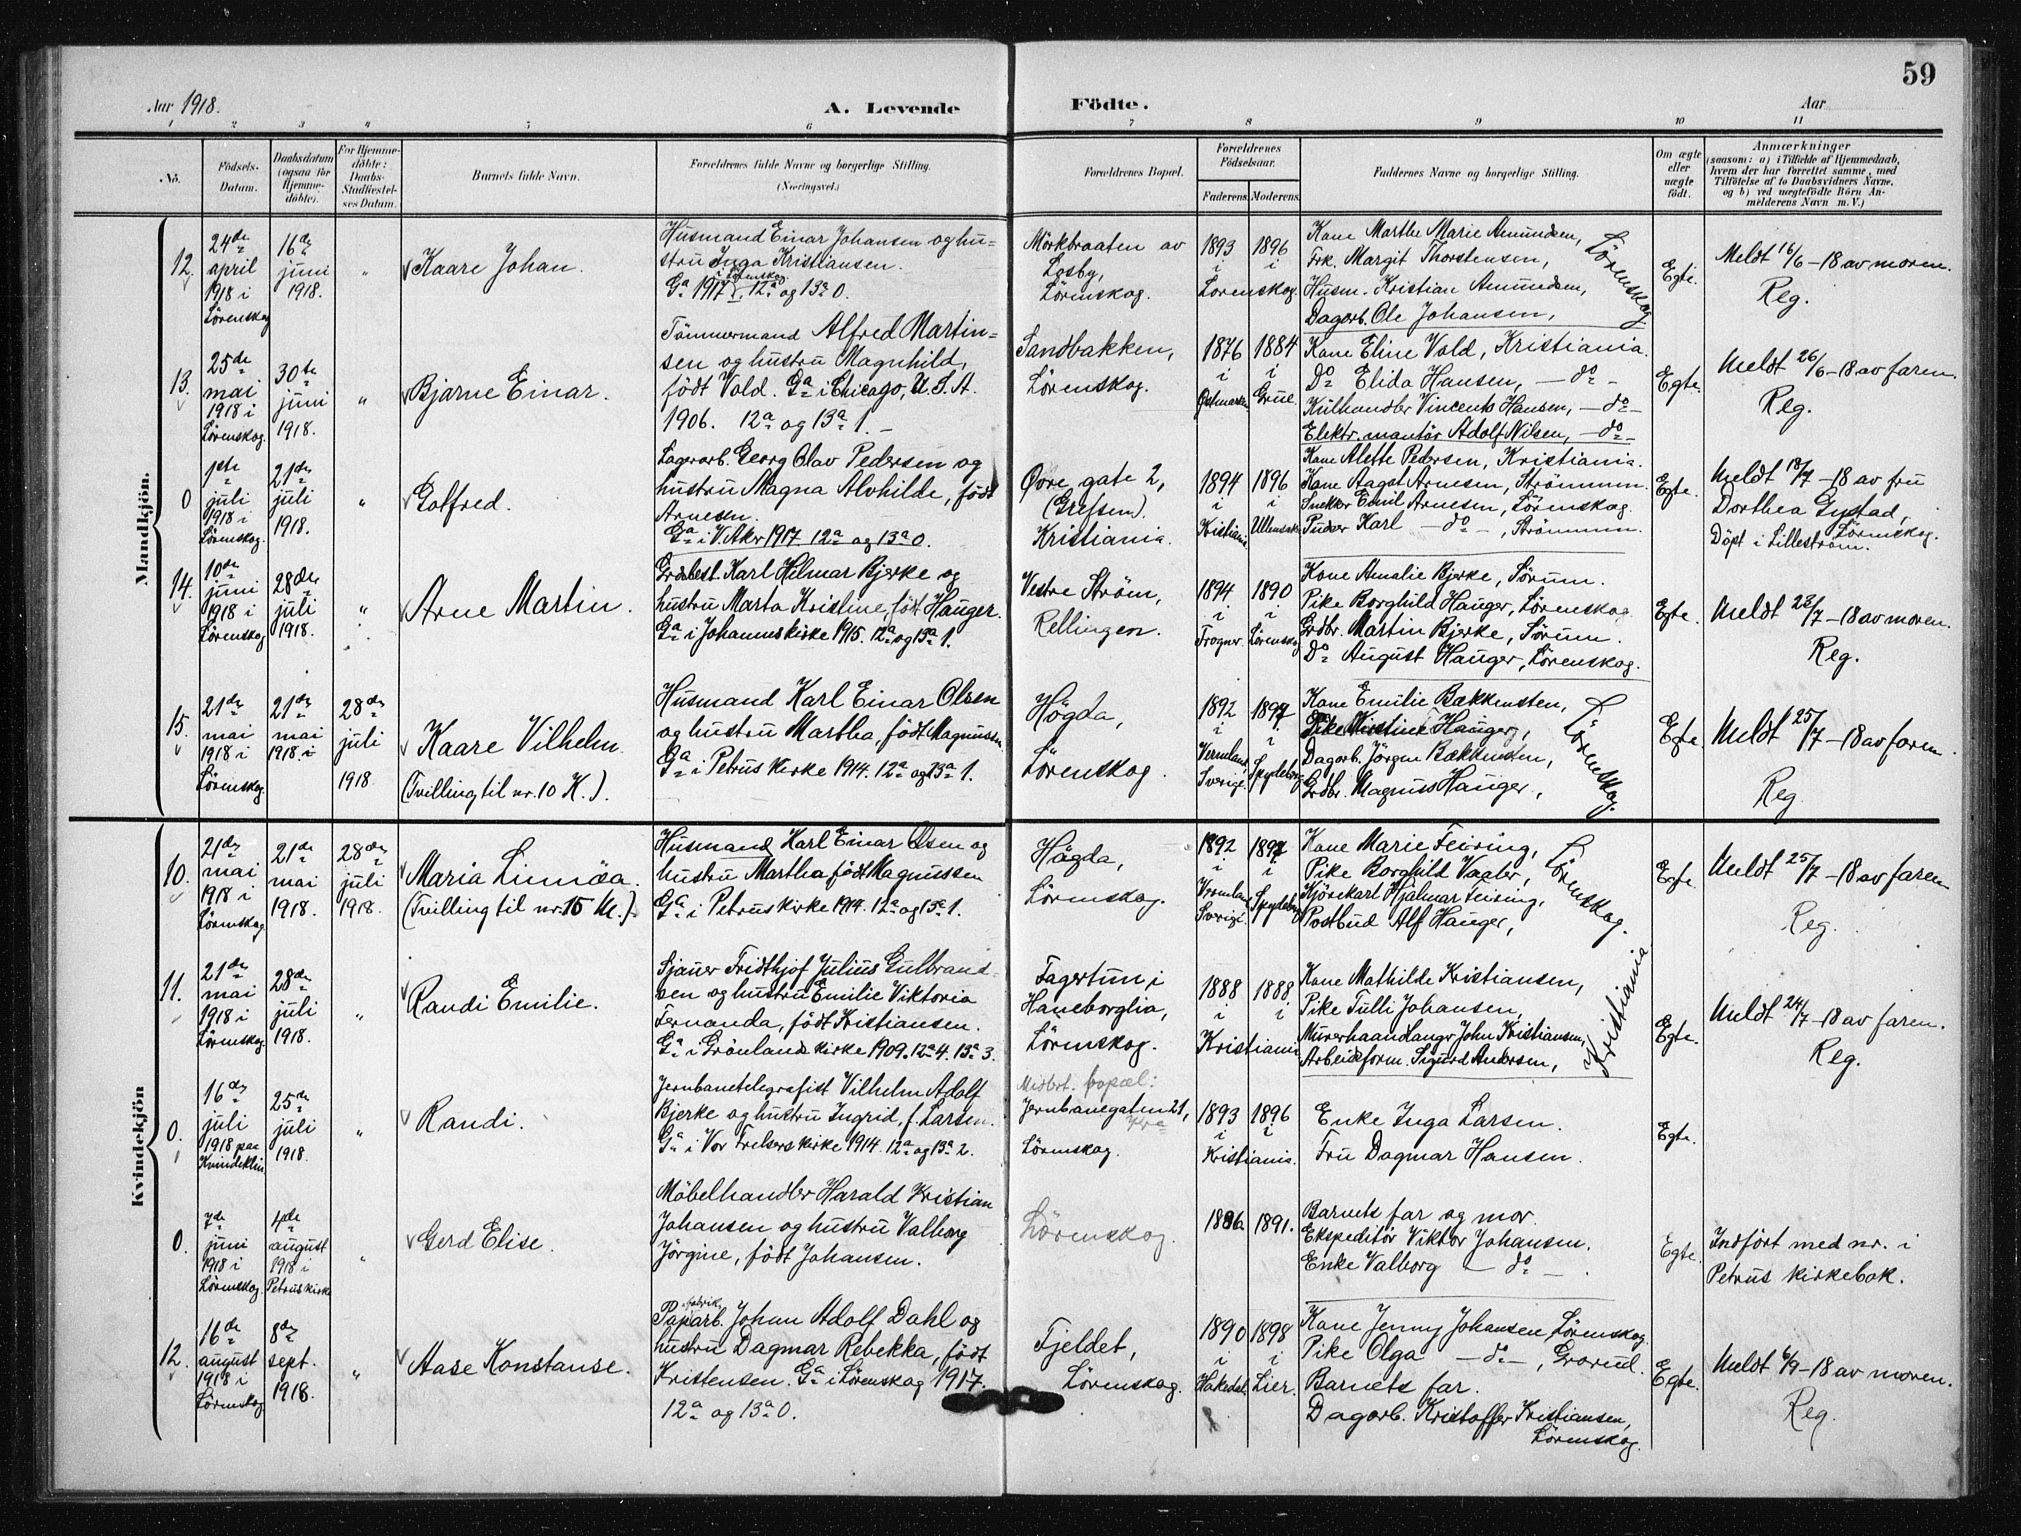 59
Aar 1918.
A. Levende
Födte.
Aar
1 2 3 4 5 6 7 8 9 10 11
No.
Födsels-
Datum.
Daabsdatum
(ogsaa for
Hjemme-
döbte).
For Hjemme-
döbte:
Daabs-
Stadfæstel-
ses Datum.
Barnets fulde Navn.
Forældrenes fulde Navne og borgerlige Stilling.
(Næringsvei.)
Forældrenes Bopæl.
Forældrenes
Födselsaar.
Faderens. Moderens.
Faddernes Navne og borgerlige Stilling.
Om ægte
eller
uægte
födt.
Anmærkninger
(saasom: a) i Tilfælde af Hjemmedaab,
hvem der har forrettet samme, med
Tilföielse af to Daabsvidners Navne,
og b) ved uægtefödte Börn An-
melderens Navn m. V.)
Mandkjön.
12.
24de
april
1918 i
Lörenskog
16de
juni
1918.
"
Kaare Johan.
Husmand Einar Johansen og hu-
stru Inga Kristiansen.
Ga 1917 i Lörenskog. 12a og 13a 0.
Mörkbraaten av
Losby,
Lörenskog.
1893 1896
i i
Lorenskog.
Kone Marthe Marie Amundsen,
Frk. Margit Thorstensen,
Husm. Kristian Amundsen,
Dagarb. Ole Johansen,
Lörenskog
Egte.
Meldt 16/6-18 av moren.
Reg.
13.
25de
mai
1918 i
Lörenskog.
30te
juni
1918.
"
Bjarne Einar.
Tömmermand Alfred Martin-
sen og hustru Magnhild,
födt Vold. Ga i Chicago, U.S.A.
1906. 12a og 13a 1.
Sandbakken,
Lörenskog.
1876 1884
i i
Östmarken Grue.
Kone Eline Vold, Kristiania.
Do Elida Hansen, — do —
Kulhandler Vincents Hansen, — do —
Elektr. mantör Adolf Nilsen, — do —
Egte.
Meldt 26/6-18 av faren.
Reg.
0
1ste
juli
1918 i
Lörenskog.
21de
juli
1918.
"
Golfred.
Lagerarb. Georg Olav Pedersen og
hustru Magna Alvhilde, födt
Arnesen.
Ga i V. Aker 1917 12a og 13a 0.
Øvre gate 2,
(Grefsen).
Kristiania.
1894 1896
i i
Kristiania Ullensaker
Kone Alette Pedersen, Kristiania.
Kone Aagot Arnesen, Strömmen.
Snekker Emil Arnesen, Lörenskog.
Pudser Karl — do —, Strömmen.
Egte.
Meldt 18/7-18 av fru
Dorthea Gystad,
Lörenskog.
Döpt i Lilleström.
14.
10de
juni
1918 i
Lörenskog
28de
juli
1918.
"
Arne Martin.
Grdbest. Karl Hilmar Bjerke og
hustru Marta Kristine, födt Hauger.
Ga i Johanneskirke 1915. 12a og 13a 1.
Vestre Ström,
Rellingen.
1894 1890
i i
Frogner Lörenskog
Kone Amalie Bjerke, Sörum.
Pike Borghild Hauger, Lörenskog
Grdbr. Martin Bjerke, Sörum.
Do August Hauger, Lörenskog.
Egte.
Meldt 28/7-18 av moren.
Reg.
15.
21de
mai
1918 i
Lörenskog.
21de
mai
1918. i
28de
juli
1918.
Kaare Vilhelm.
(Tvilling til nr. 10 K.).
Husmand Karl Einar Olsen
og hustru Martha, födt Magnussen
Ga i Petrus kirke 1914. 12a og 13a 1.
Högda,
Lörenskog.
1892 1897
i i
Vermland, Spydeberg
Sverige.
Kone Emilie Bækkensten,
Pike Kristine Hauger,
Dagarb. Jörgen Bækkensten,
Grdbr. Magnus Hauger,
Lörenskog.
Egte.
Meldt 25/7-18 av faren.
Reg.
Kvindekjön
10.
21de
mai
1918 i
Lörenskog
21de
mai
1918.
28de
juli
1918.
Maria Linnöa.
(Tvilling til nr. 15 M.).
Husmand Karl Einar Olsen og
hustru Martha födt Magnussen
Ga i Petrus kirke 1914. 12a og 13a 1.
Högda,
Lörenskog.
1892 1897
i i
Vermland Spydeberg
Sverige.
Kone Marie Feiring,
Pike Borghild Vaaler,
Kjörekarl Hjalmar Feiring,
Postbud Alf Hauger,
Lörenskog.
Egte.
Meldt 25/7-18 av faren
Reg.
11.
21de
mai
1918 i
Lörenskog
28de
juli
1918.
"
Randi Emilie.
Sjauer Fridthjof Julius Gulbrand-
sen og hustru Emilie Viktoria
Fernanda, födt Kristiansen.
Ga i Grönlands kirke 1909. 12a 4. 13a 3.
Fagertun i
Haneborglia,
Lörenskog.
1888 1888
i i
Kristiania
Kone Mathilde Kristiansen,
Pike Tulli Johansen,
Murerhaandlanger John Kristiansen,
Arbeidsform. Sigurd Andersen,
Kristiania
Egte.
Meldt 24/7-18 av faren.
Reg.
0.
16de
juli
1918 paa
Kvindeklin
25de
juli
1918.
"
Randi.
Jernbanetelegrafist Vilhelm Adolf
Bjerke og hustru Ingrid, f. Larsen.
Ga i Vor Frelsers kirke 1914. 12a og 13a 2.
Midlert. bopæl:
Jernbanegaten 21,
Lörenskog.
1893 1896
i i
Kristiania.
Enke Inga Larsen.
Fru Dagmar Hansen.
Egte.
0.
7de
juni
1918 i
Lörenskog.
4de
august
1918 i
Petrus kirke
"
Gerd Elise.
Møbelhandler Harald Kristian
Johansen og hustru Valborg
Jörgine, födt Johansen.
Lörenskog.
1886 1891.
Barnets far og mor.
Ekspeditör Viktor Johansen.
Enke Valborg — do —.
Egte.
Indfört med nr. i
Petrus kirkebok.
12.
16de
august
1918 i
Lörenskog
8de
sept.
1918.
"
Aase Konstanse.
Papirfabrikarb. Johan Adolf Dahl og
hustru Dagmar Rebekka, födt
Kristensen. Ga i Lörenskog 1917.
12a og 13a 0.
Fjeldet,
Lörenskog.
1890 1898
i i
Hakedal Lier.
Kone Jenny Johansen Lörenskog.
Pike Olga — do —, Grorud.
Barnets far.
Dagarb. Kristoffer Kristiansen,
Lörenskog.
Egte.
Meldt 6/9-18 av moren.
Reg.